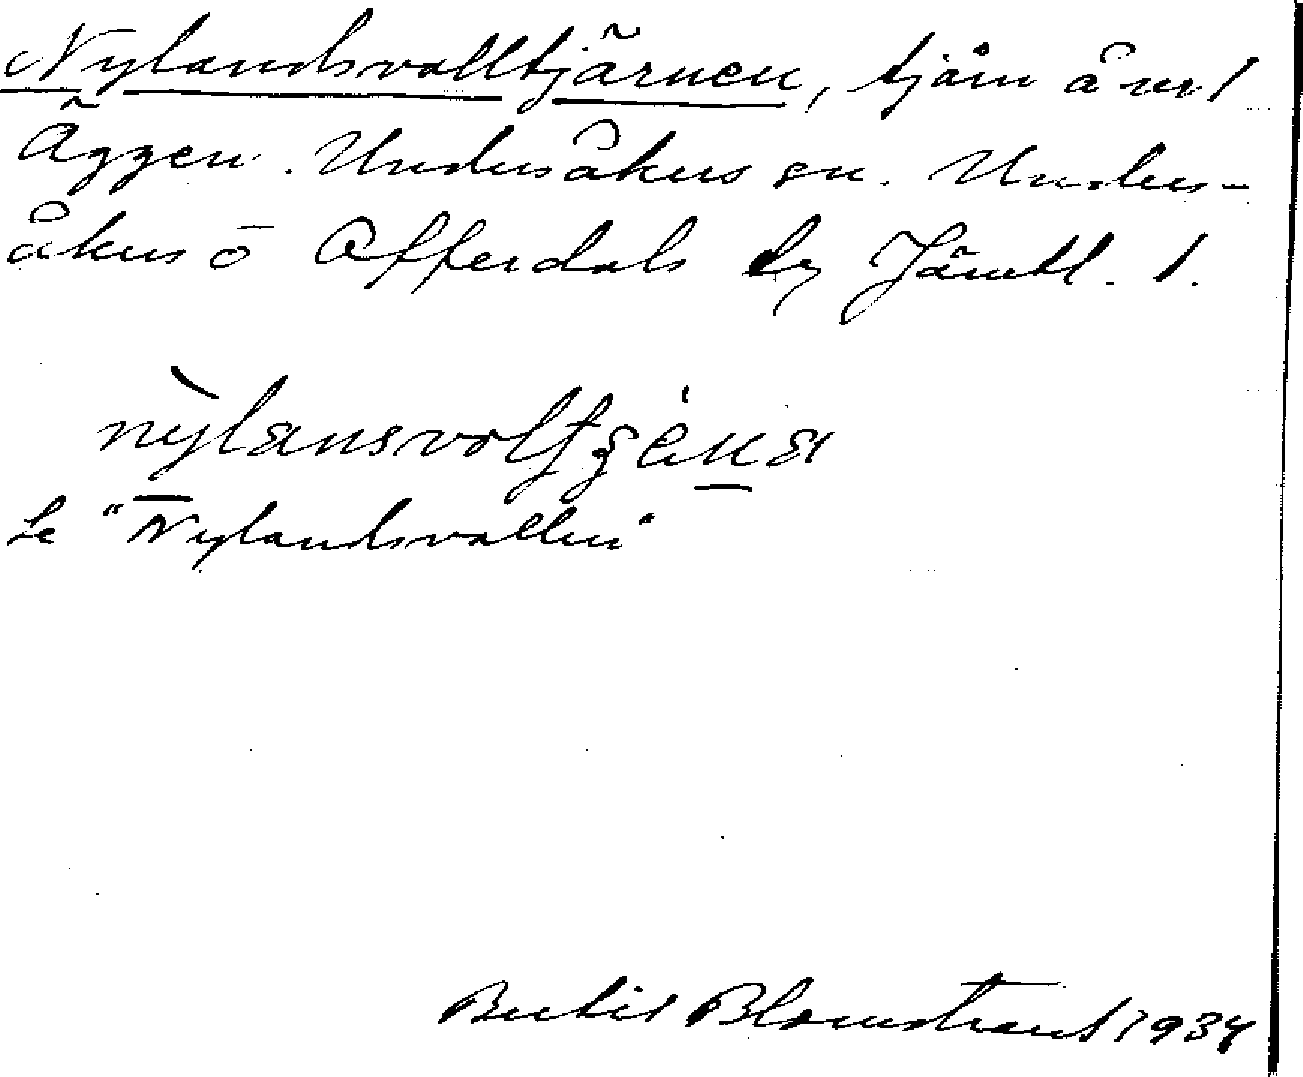 Nylandsvalltjärnen, tjärn å nv l
Äggen. Undersåkers sn. Unders-
åkers o Offerdals tg Jämtl. l.
nỳlansvolt
Se "Nylandsvallen"
Bertil Blomstrand 1934